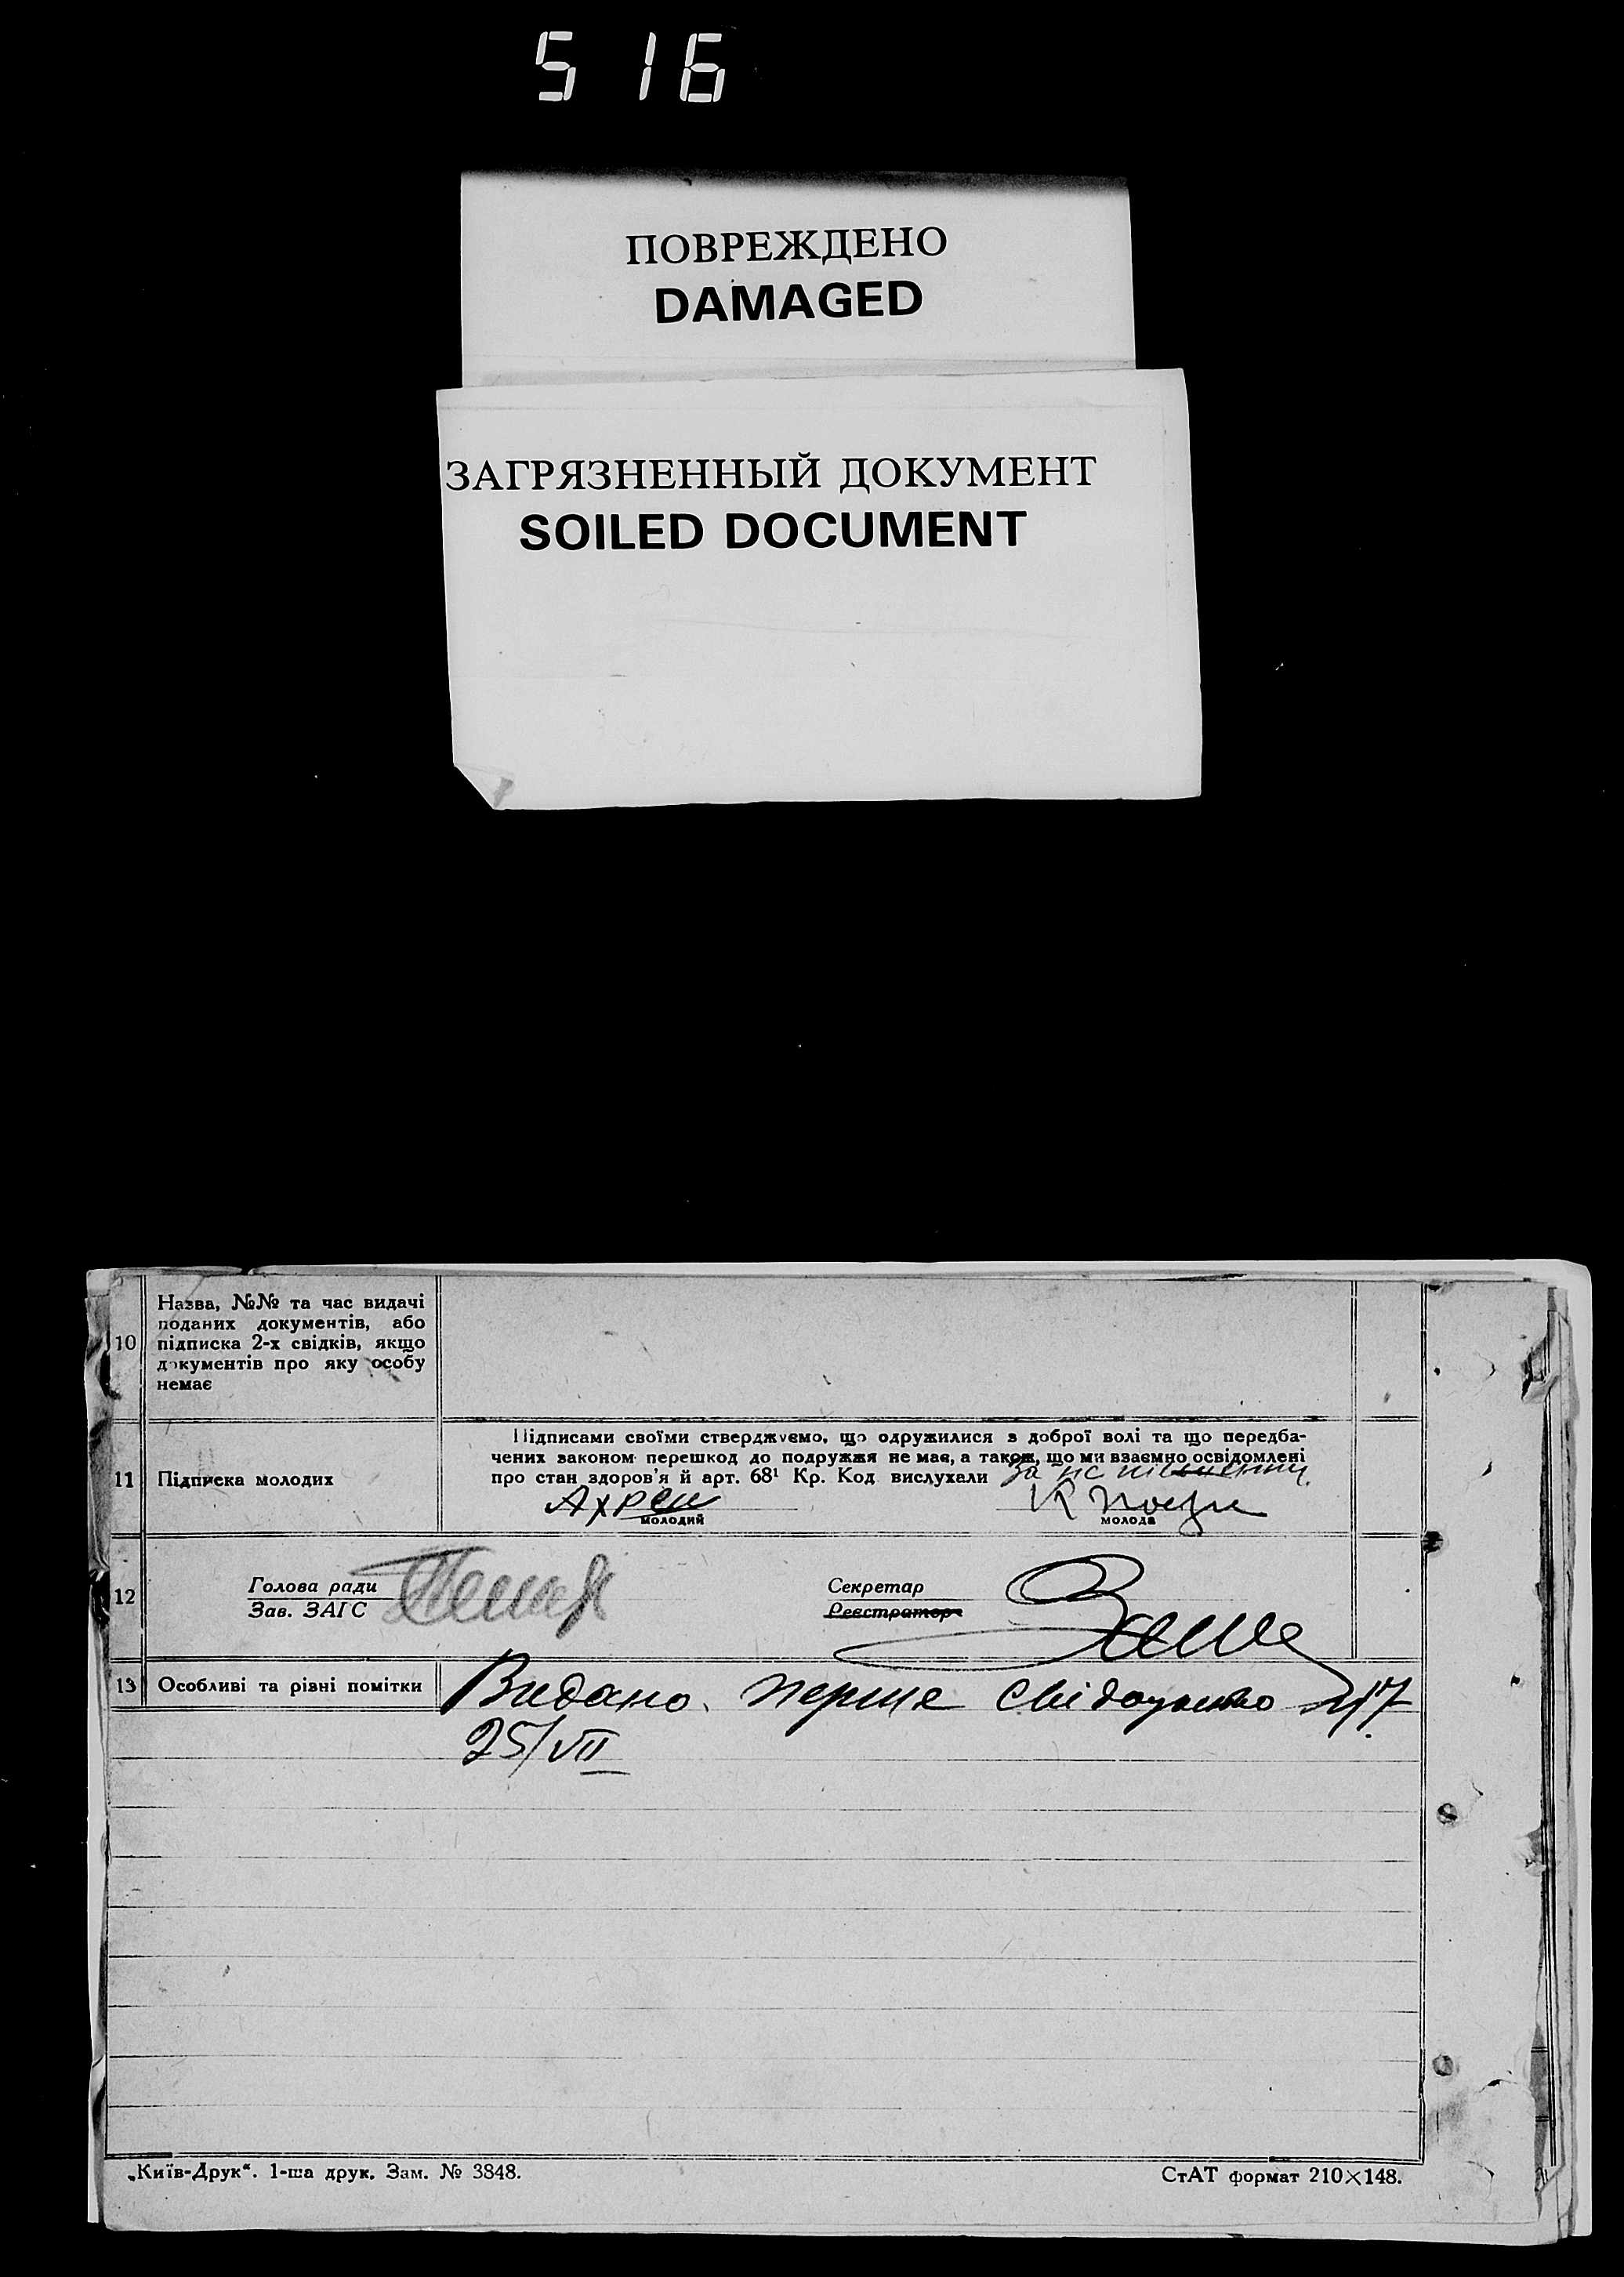 516
ПОВРЕЖДЕНО
DAMAGED
ЗАГРЯЗНЕННЫЙ ДОКУМЕНТ
SOILED DOCUMENT
10
Назва, №№ та час видачі
поданих документів, або
підписка 2-х свідків, якщо
документів про яку особу
немає
11
Підписка молодих
Підписами своїми стверджуємо, що одружилися з доброї волі та що передба-
чених законом перешкод до подружжя не має, а також, що ми взаємно освідомлені
про стан здоров'я й арт. 68¹ Кр. Код. вислухали
молодий
молода
12
Голова ради
Зав. ЗАГС
Секретар
Реєстратор
13
Особливі та різні помітки
Видано перше свідоцтво
25/VII
„Київ-Друк“. 1-ша друк. Зам. № 3848.
СтАТ формат 210×148.